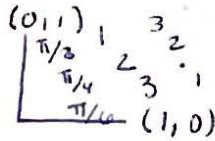 (0,1) 1 3
π/3 2
π/4 2 .
3 1
π/6 (1,0)